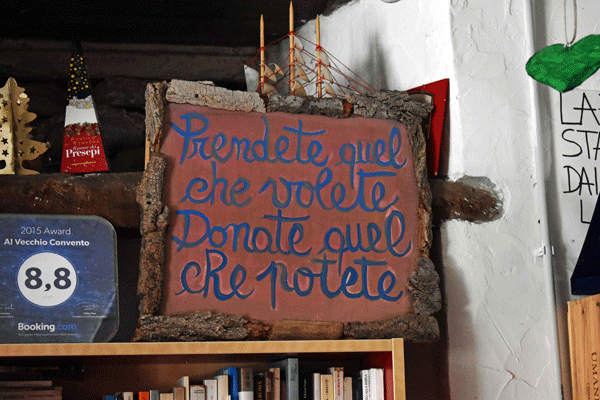 Prendete quel
che volete
Donate quel
che potete
2015 Award
Al Vecchio Convento
8,8
Booking.com
Il paese dei
Presepi
LA
STA
DAI
L
UMAN